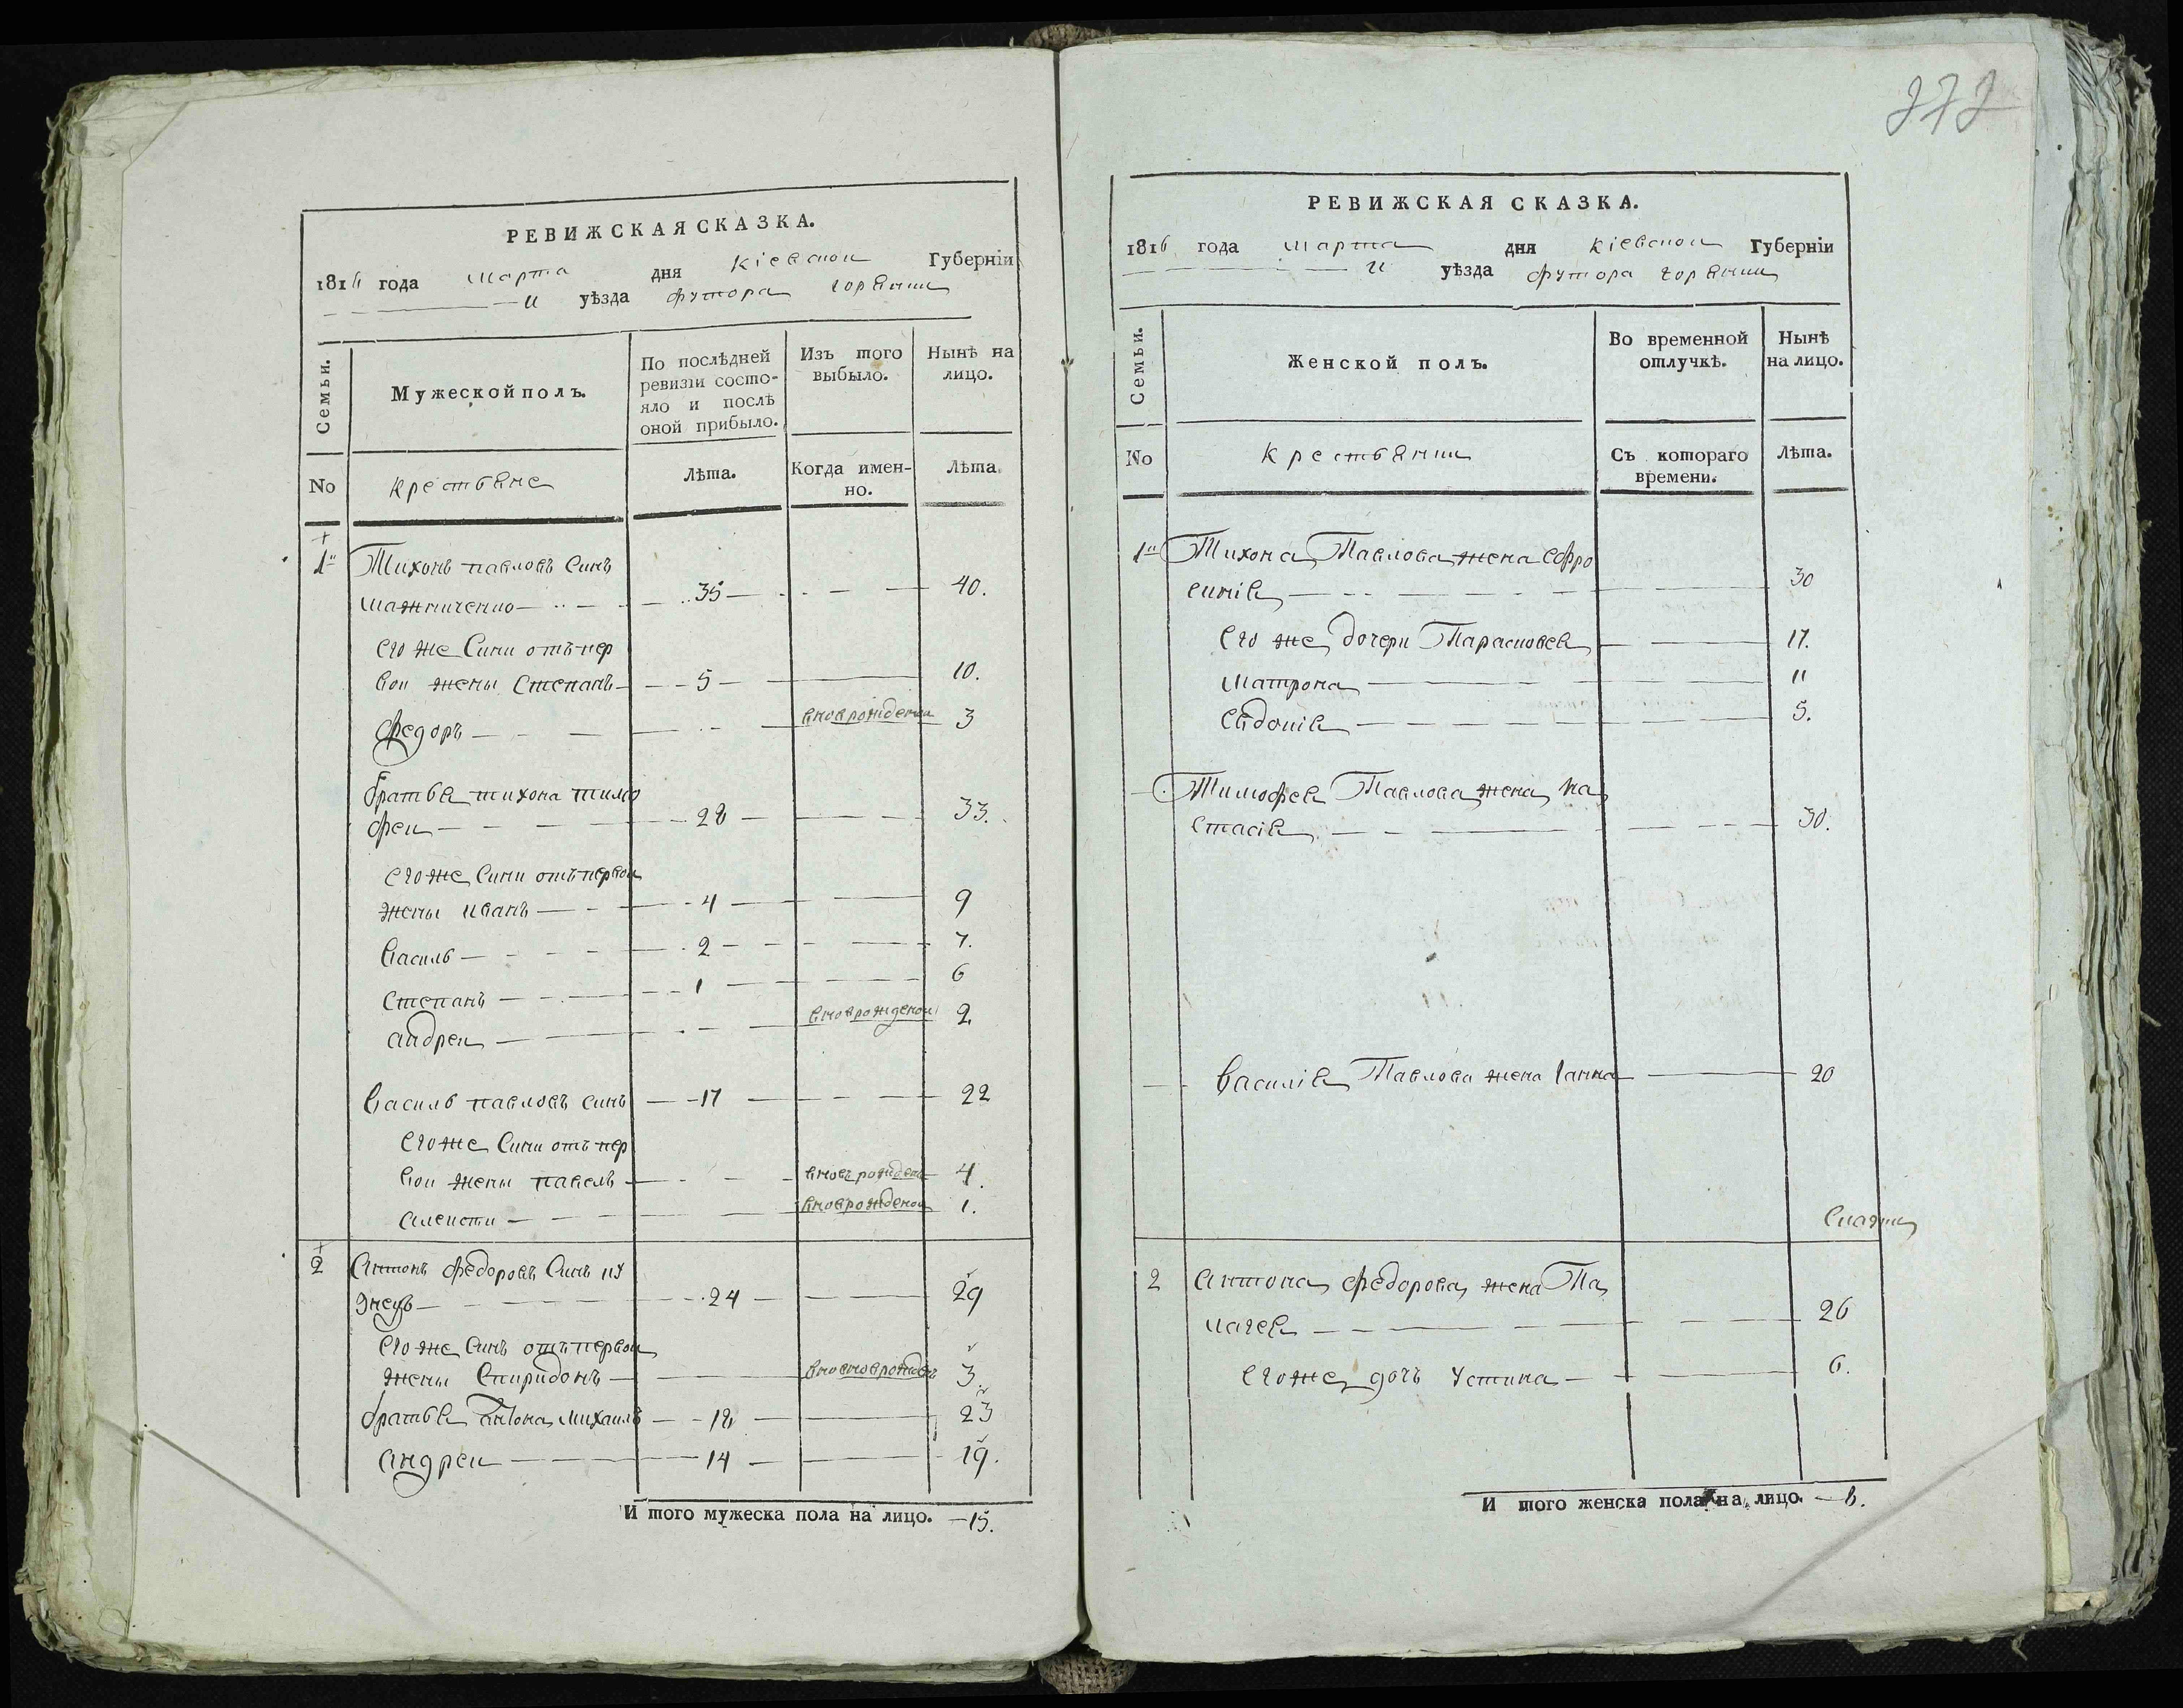 272
РЕВИЖСКАЯ СКАЗКА.
1816 года марта дня Кіевской Губерніи
— и уѣзда футора горянки
Семьи.
Мужеской полъ.
По послѣдней ревизіи состо-
яло и послѣ оной прибыло.
Изъ того выбыло.
Нынѣ на лицо.
No
крестьяне
Лѣта.
Когда имен-
но.
Лѣта.
1й Тихонъ павловъ синъ
— 35 — 40.
его же сини отъ пер
вои жены Степанъ — 5 — 10.
федоръ — вноврожденои 3
братья тихона тимо
феи — 28 — 33.
его же сини отъ первои
жены иванъ — 4 — 9
василь — 2 — 7.
степанъ — 1 — 6
андреи — вноврожденои 2
василь павловъ синъ — 17 — 22
его же сини отъ пер
вои жены павелъ — вновърожденъ 4.
алексти — вноврожденои 1.
2 Антонъ федоровъ синъ ку
знецъ — 24 — 29
его же синъ отъ первои
жены Спиридонъ — 3.
братья антона михаилъ — 18 — 23
андреи — 14 — 19.
И того мужеска пола на лицо. — 15.
РЕВИЖСКАЯ СКАЗКА.
1816 года марта дня Кіевской Губерніи
— и уѣзда футора горянки
Семьи.
Женской полъ.
Во временной отлучкѣ.
Нынѣ на лицо.
No
крестьянки
Съ котораго времени.
Лѣта.
1й Тихона Павлова жена Ефро
синія — 30
его же дочери Парасковея — 17.
матрона — 11
евдокія — 5.
Тимофея Павлова жена на
стасія — 30.
василія Павлова жена ганна — 20
2 антона федорова жена Па
лагея — 26
его же дочъ устина — 6.
И того женска пола на лицо. — 8.